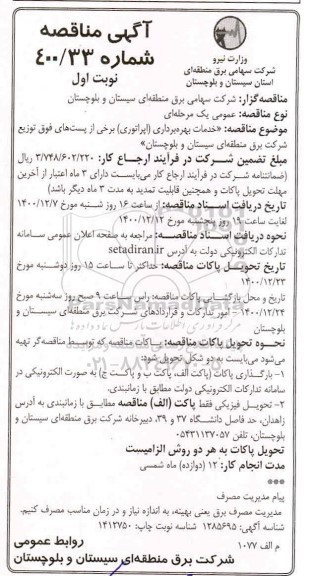 وزارت نیرو
شرکت سهامی برق منطقه‌ای
استان سیستان و بلوچستان
آگهی مناقصه
شماره ۴۰۰/۳۳
نوبت اول
مناقصه‌گزار: شرکت سهامی برق منطقه‌ای سیستان و بلوچستان
نوع مناقصه: عمومی یک مرحله‌ای
موضوع مناقصه: «خدمات بهره‌برداری (اپراتوری) برخی از پست‌های فوق توزیع
شرکت برق منطقه‌ای سیستان و بلوچستان»
مبلغ تضمین شرکت در فرآیند ارجاع کار: ۳/۷۴۸/۶۰۲/۲۲۰ ریال
(ضمانتنامه شرکت در فرآیند ارجاع کار می‌بایست دارای ۳ ماه اعتبار از آخرین
مهلت تحویل پاکات و همچنین قابلیت تمدید به مدت ۳ ماه دیگر باشد)
تاریخ دریافت اسناد مناقصه: از ساعت ۱۶ روز شنبه مورخ ۱۴۰۰/۱۲/۷
لغایت ساعت ۱۹ روز پنجشنبه مورخ ۱۴۰۰/۱۲/۱۲
نحوه دریافت اسناد مناقصه: مراجعه به صفحه اعلان عمومی سامانه
تدارکات الکترونیکی دولت به آدرس setadiran.ir
تاریخ تحویل پاکات مناقصه: حداکثر تا ساعت ۱۵ روز دوشنبه مورخ
۱۴۰۰/۱۲/۲۳
تاریخ و محل بازگشایی پاکات مناقصه: راس ساعت ۹ صبح روز سه‌شنبه مورخ
۱۴۰۰/۱۲/۲۴ امور تدارکات و قراردادهای شرکت برق منطقه‌ای سیستان و
بلوچستان
نحوه تحویل پاکات مناقصه: پاکات مناقصه که توسط مناقصه‌گر تهیه
می‌شود می‌بایست به دو شکل تحویل شود:
۱- بارگذاری پاکات (پاکت الف، پاکت ب و پاکت ج) به صورت الکترونیکی در
سامانه تدارکات الکترونیکی دولت مطابق با زمانبندی.
۲- تحویل فیزیکی فقط پاکت (الف) مناقصه مطابق با زمانبندی به آدرس
زاهدان، حد فاصل دانشگاه ۳۷ و ۳۹، دبیرخانه شرکت برق منطقه‌ای سیستان و
بلوچستان، تلفن ۰۵۴۳۱۱۳۷۰۵۷
تحویل پاکات به هر دو روش الزامیست
مدت انجام کار: ۱۲ (دوازده) ماه شمسی
***
پیام مدیریت مصرف
مدیریت مصرف برق یعنی بهینه، به اندازه نیاز و در زمان مناسب مصرف کنیم.
شناسه آگهی: ۱۲۸۵۶۹۵ شناسه نوبت چاپ: ۱۴۱۲۷۵۰
م الف ۱۰۷۷
روابط عمومی
شرکت برق منطقه‌ای سیستان و بلوچستان